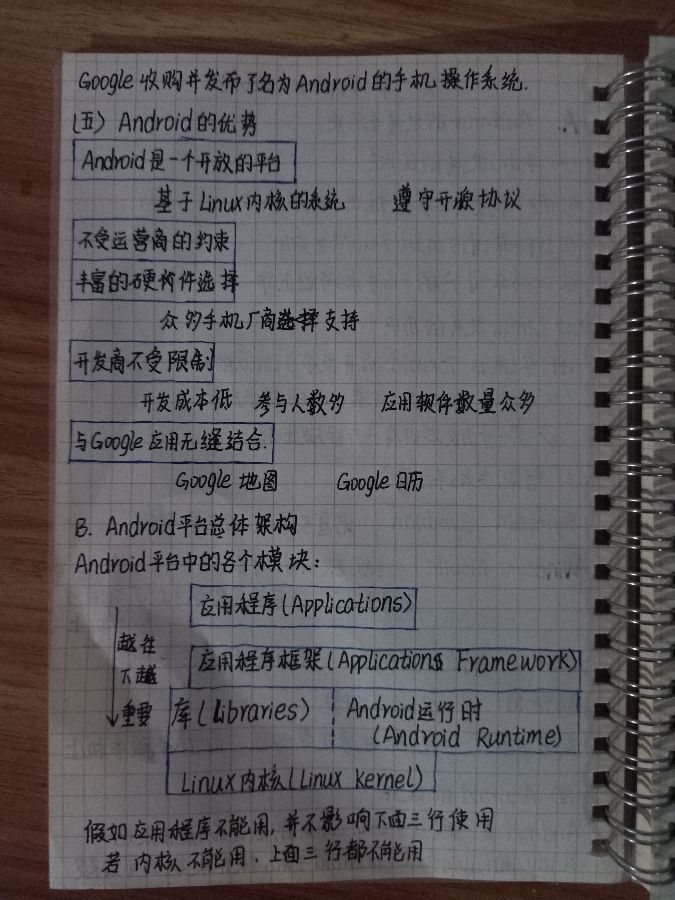 Google 收购并发布了名为Android的手机操作系统.
(五) Android的优势
Android是一个开放的平台
基于Linux内核的系统 遵守开源协议
不受运营商的约束
丰富的硬件选择
众多手机厂商支持
开发商不受限制
开发成本低 参与人数多 应用软件数量众多
与Google应用无缝结合.
Google 地图 Google 日历
B. Android平台总体架构
Android平台中的各个模块:
应用程序(Applications)
越往
下越
重要
应用程序框架(Applications Framework)
库(Libraries) Android运行时
(Android Runtime)
Linux内核(Linux kernel)
假如应用程序不能用,并不影响下面三行使用
若内核不能用.上面三行都不能用